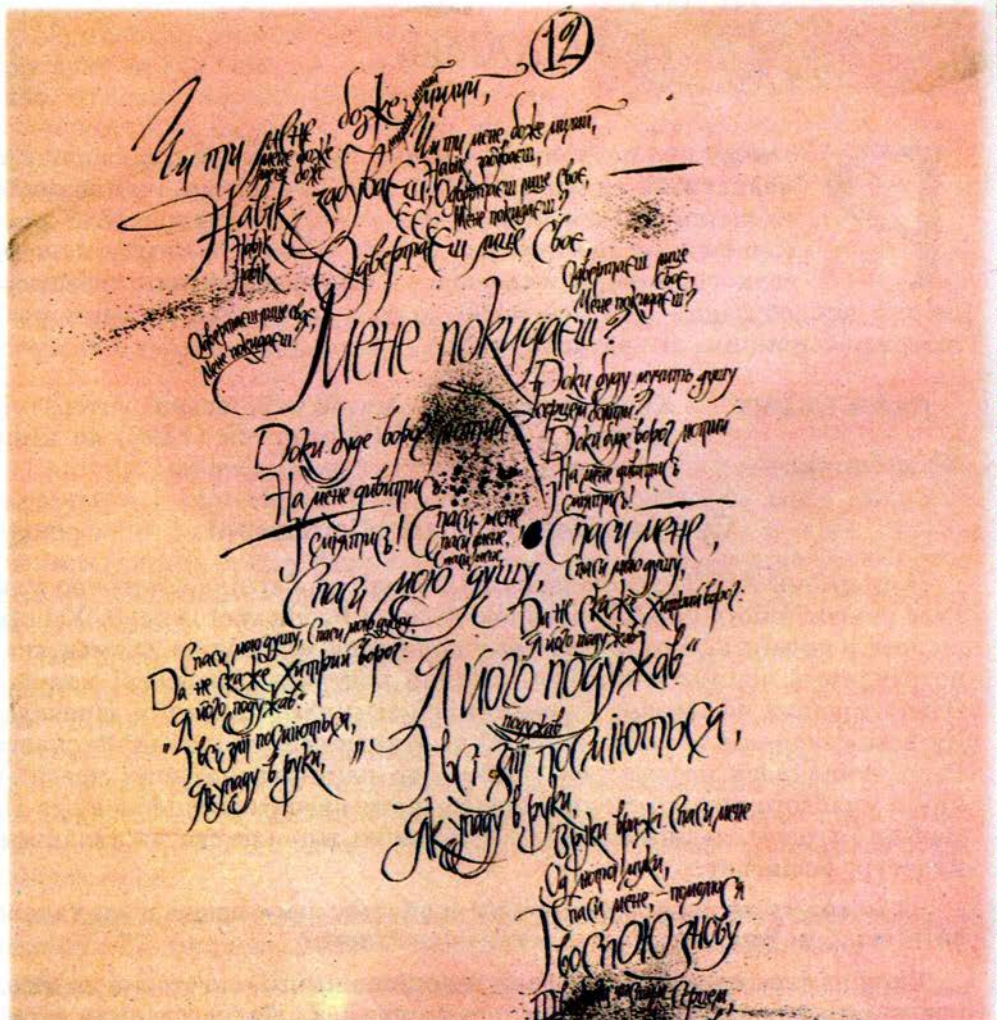 12
Чи ти мене, боже милий,
мене боже
мене боже
Навік забуваєш,
Навік
Навік
Чи ти мене, боже милий,
Навік забуваєш,
Одвертаєш лице своє,
Мене покидаєш?
є є є
Одвертаєш лице своє,
Одвертаєш лице
своє,
Мене покидаєш?
Одвертаєш лице своє,
Мене покидаєш?
Мене покидаєш?
Доки буду мучить душу
серцем боліти?
Доки буде ворог лютий
Доки буде ворог лютий
На мене дивитись
На мене дивитись
І сміятись!
І сміятись!
Спаси мене
Спаси мене,
Спаси мене
Спаси мене,
Спаси мою душу,
Спаси мою душу,
Да не скаже хитрий ворог:
Я його подужав
Спаси мою душу, Спаси мою душу,
Да не скаже хитрий ворог:
"Я його подужав"
І всі злії посміються,
Як упаду в руки,
Я його подужав"
подужав
І всі злії посміються,
Як упаду в руки,
В руки вражі. Спаси мене
Од лютої муки,
Спаси мене, – помолюся
І воспою знову
серцем,